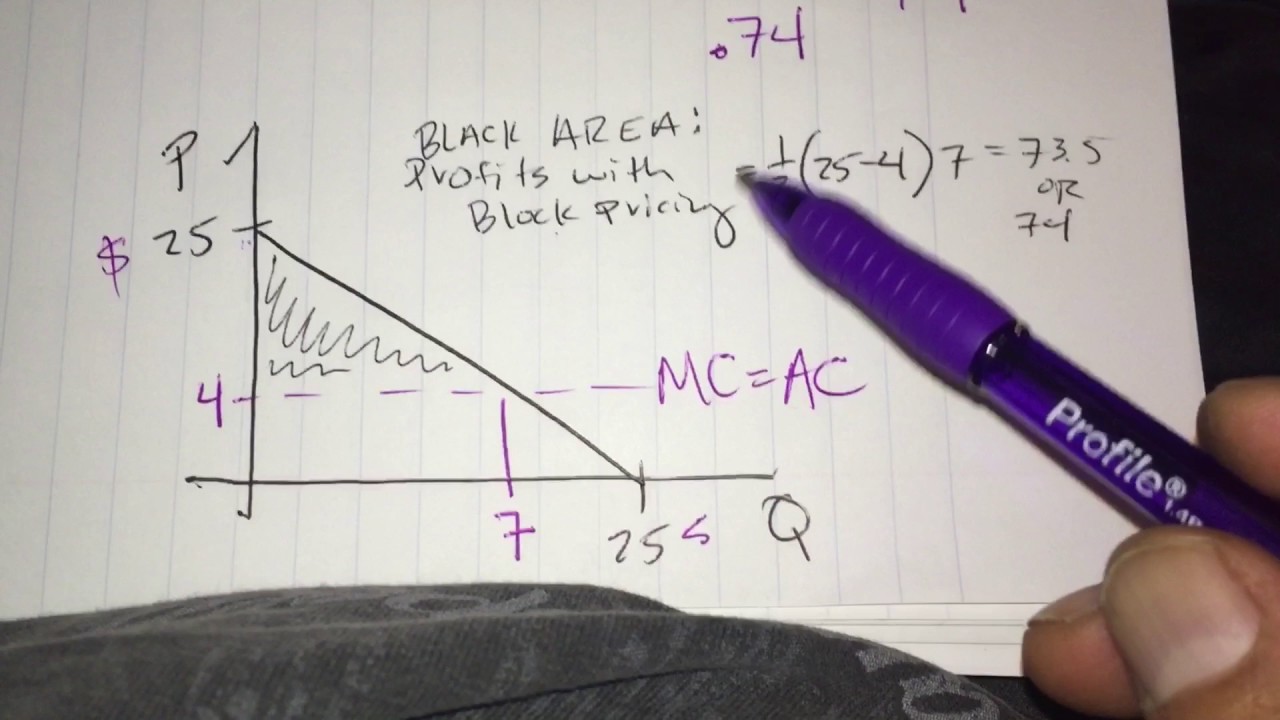 .74
BLACK AREA:
Profits with
Block Pricing
= 1/2 (25-4) 7 = 73.5
OR
74
P
$ 25
4
MC=AC
7
25 s
Q
Profile®